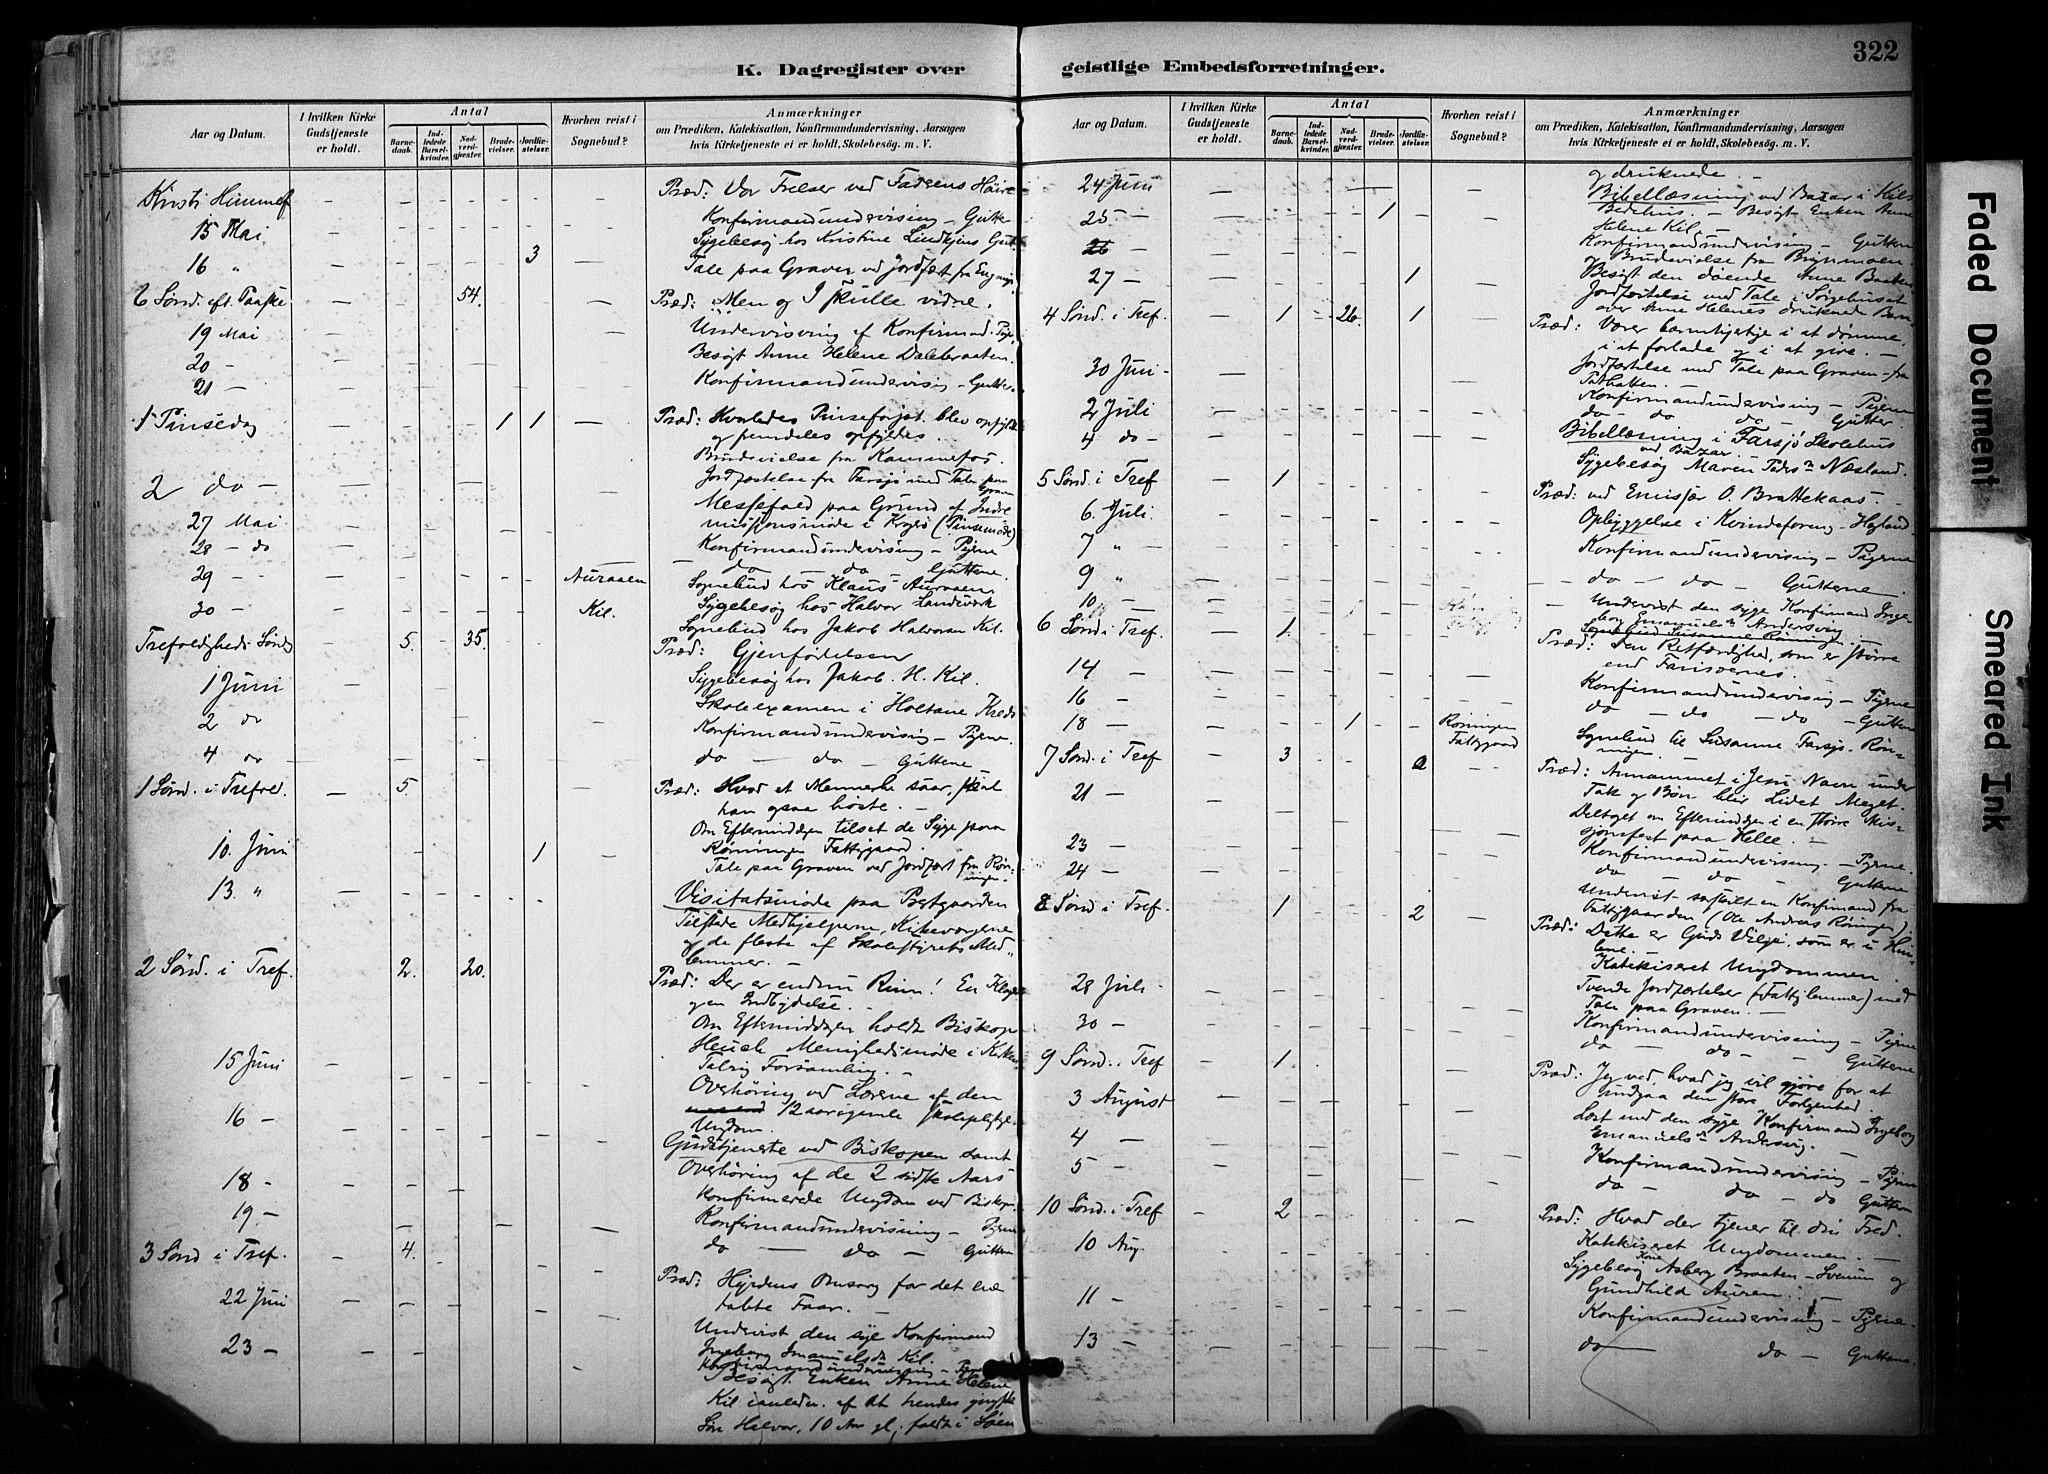 322
K. Dagregister over geistlige Embedsforretninger.
Aar og Datum.
I hvilken Kirke Gudstjeneste er holdt.
Antal
Barnedaab.
Indledede Barselkvinder.
Nadverdgjæster.
Brudevielser.
Jordfæstelser.
Hvorhen reist i Sognebud?
Anmærkninger
om Prædiken, Katekisation, Konfirmandundervisning, Aarsagen
hvis Kirketjeneste ei er holdt, Skolebesøg. m. V.
Kristi Himmelf
Præd: Vor Frelser ved Faderens Høire
15 Mai
Konfirmandundervisning – Gutte
Sygebesøg hos Kristine
16 "
3
Tale paa Graven ved Jordfæst fra
6 Sønd. eft. Paaske
54.
Præd: Men og I skulle vidne.
19 Mai
Undervisning af Konfirmand.
20 -
Besøgt Anne Helene Dalebraaten.
21 -
Konfirmandundervisnig – Gutter.
1 Pinsedag
1 1
Præd: Hvorledes Pinseforjæt. blev opfyldt
og fremdeles opfyldes.
Brudevielse fra Kammerfos.
Jordfæstelse fra Farsjø med Tale paa Graven
2 do -
Messefald paa Grund af Indre
27 Mai
misjonsmøde i Kragerø (Pinsemøde)
28 - do
Konfirmandundervisning – Pigerne
29 -
Auraaen
– do – do Guttene
Sognebud hos Klaus Auraaen.
30 -
Kil.
Sygebesøg hos Halvor Landsverk
Sognebud hos Jakob Halvorsen Kil.
Trefoldigheds Sønds
5. 35.
Præd: Gjenfødelsen
1 Juni
Sygebesøg hos Jakob H. Kil.
2 do
Skoleexamen i Holtane Kreds
4 do
Konfirmandundervisning – Pigerne.
do – do – Guttene
1 Sønd. i Trefold.
5.
Præd: Hvad et Menneske saar, skal
han ogsaa høste. –
Om Eftermiddagen tilset de Syge paa
Rønningen Fattiggaard.
10. Juni
1
Tale paa Graven ved Jordfæst fra Rønningen.
13. "
Visitatsmøde paa Prestgaarden
Tilstede Medhjelperne, Kirkevergerne
og de fleste af Skolestyrets Medlemmer. –
2 Sønd. i Tref.
2. 20.
Præd: Der er endnu Rum! En Klage
og en Indbydelse. –
Om Eftermiddagen holdt Biskop
15 Juni
Heuch Menighedsmøde i Kirken
Talrig Forsamling. –
Overhøring ved Lærerne af den
16 -
12 aarsgamle skolepligtige
Ungdom.
Gudstjeneste ved Biskopen samt
18 -
Overhøring af de 2 sidste Aars
Konfirmerede Ungdom ved Biskopen
19. -
Konfirmandundervisning – Pigerne
3 Sønd i Tref.
4.
do – do – Guttene
Præd: Hyrdens Omsorg for det ene
22 Juni
tabte Faar. –
Undervist den syge Konfirmand
23 -
Ingeborg Emanuelsdt. Kil.
Konfirmandundervisning –
Besøgt Enken Anne Helene
Kil i anledn. af at hendes yngste
Søn Halvor, 10 Aar gl. faldt i Søen
Aar og Datum.
I hvilken Kirke Gudstjeneste er holdt.
Antal
Barnedaab.
Indledede Barselkvinder.
Nadverdgjæster.
Brudevielser.
Jordfæstelser.
Hvorhen reist i Sognebud?
Anmærkninger
om Prædiken, Katekisation, Konfirmandundervisning, Aarsagen
hvis Kirketjeneste ei er holdt, Skolebesøg. m. V.
og druknede. –
24 Juni
Bibellæsning ved Bazar i Kils
25 -
1
Bedehus. – Besøgt Enken Anne
Helene Kil. –
26
Konfirmandundervisning – Guttene
Brudevielse fra
27 -
1
Besøgt den døende Anne Braaten
Jordfæstelse med Tale i Sørgehuset
4 Sønd. i Tref.
1 26. 1
over Anne Helenes druknede Barn
Præd: Værer barmhjertige i at dømme,
i at forlade og i at give. –
30 Juni -
Jordfæstelse med Tale paa Graven – fra
2 Juli
Konfirmandundervisning – Pigerne
4 do -
do – do do – Gutter
Bibellæsning i Farsjø Skolehus
ved Bazar. –
5 Sønd. i Tref
1
Sygebesøg Maren Næsland.
Præd: ved Emisjær O. Brattekaas –
6. Juli.
Opbyggelse i Kvindeforening
7 " -
Konfirmandundervisning – Pigerne
9 "
– do – do – Guttene
10 -
– Undervist den syge Konfirmand Ingeborg Emanuelsdt Andersvig
6 Sønd i Tref.
1.
Sognebud Susanne Røningen
14 -
Præd: Den Retfærdighed, som er større
end Farisæernes.
16 -
Konfirmandundervisning – Pigerne
18 -
1
Røningen Fattiggaard
do – do – do – Guttene
Sognebud til Susanne Farsjø. Rønningen. –
7 Sønd. i Tref
3 2
Præd: Annammet i Jesu Navn under
21 -
Tak og Bøn blir Lidet Meget.
Deltaget om Eftermiddagen i en større Missjonsfest paa Helle. –
23 -
Konfirmandundervisning – Pigerne.
24 -
do – do – Guttene
Undervist særskilt en Konfirmand fra
8 Sønd i Tref.
1 2
Fattiggaarden (Ole Andreas Røningen)
Præd: Dette er Guds Vilje, som er i Himlene.
28 Juli -
Katekiseret Ungdommen.
Tvende Jordfæstelser (Fattiglemmer) med
30 -
Tale paa Graven. –
Konfirmandundervisning – Pigerne
9 Sønd. i Tref
1
do – do – – Guttene
Præd: Jeg ved, hvad jeg vil gjøre for at
3 August
undgaa den store Forlegenhed.
4 -
Læst med den syge Konfirmand Ingeborg
Emanuelsdt Andersvig. –
5 -
Konfirmandundervisning – Pigerne
10 Sønd. i Tref
2
do – do – do Guttene
Præd: Hvad der tjener til din Fred.
10 Aug.
Katekiseret Ungdommen. –
Sygebesøg Kone Asberg Braaten – Svenum og
11 -
Gundhild Auren. –
Konfirmandundervisning – Pigerne.
13 -
do – do – Guttene.
Faded Document
Smeared Ink